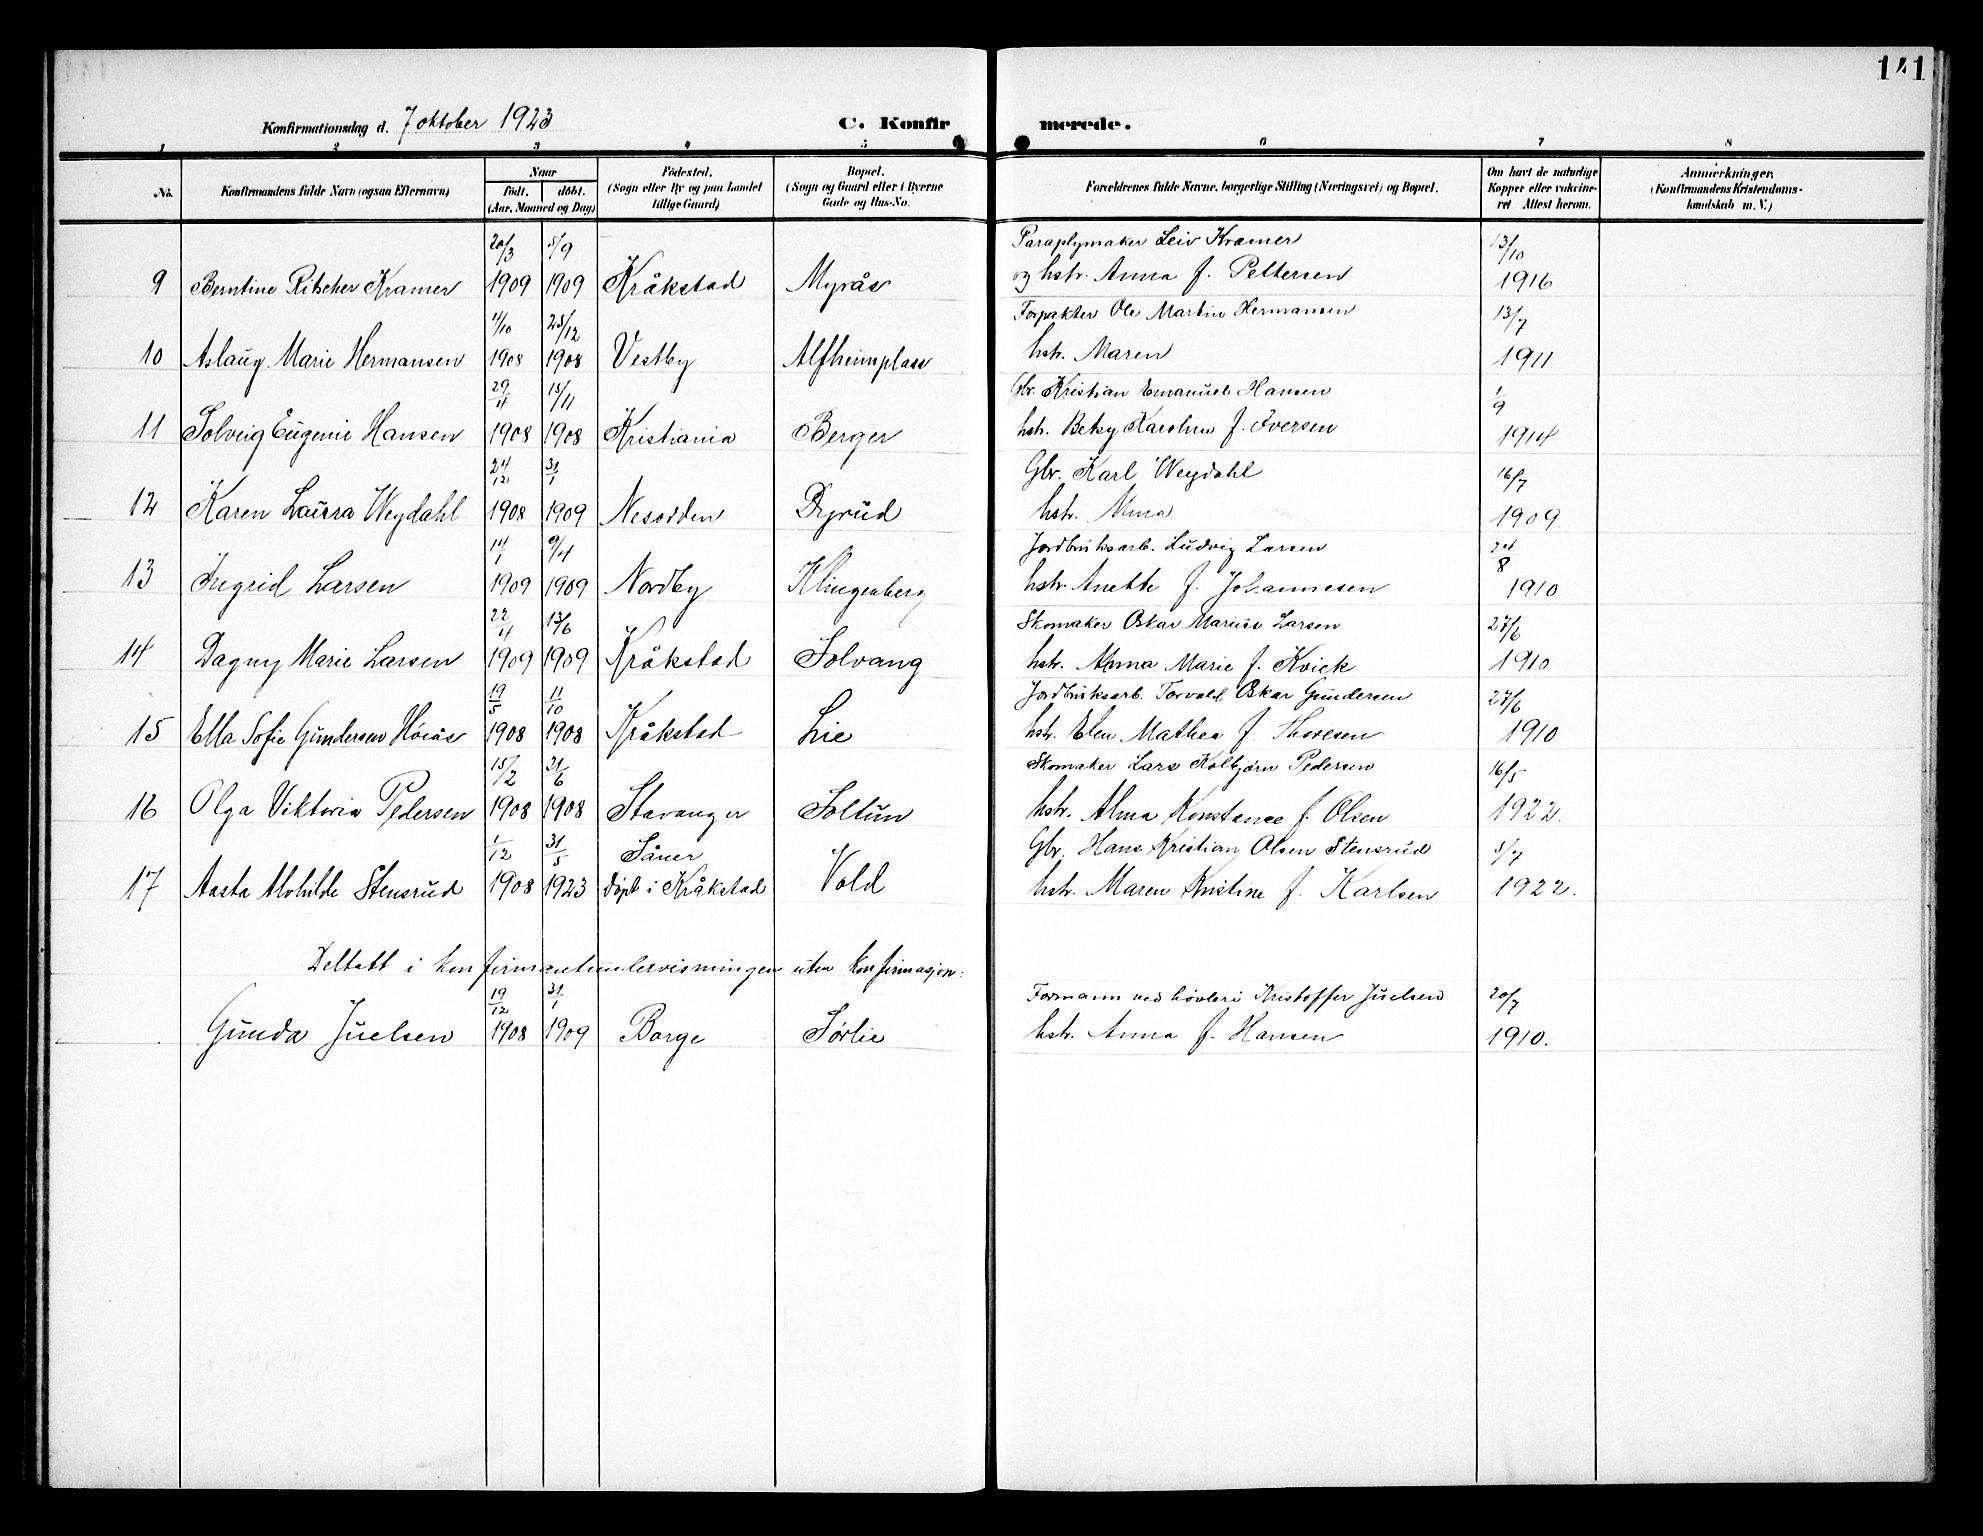 141
Konfirmationsdag d. 7 oktober 1923
C. Konfirmerede.
1 2 3 4 5 6 7 8
No.
Konfirmandens fulde Navn (ogsaa Efternavn)
Naar
født. døbt.
(Aar, Maaned og Dag)
Fødested.
(Sogn eller By og paa Landet
tillige Gaard)
Bopæl.
(Sogn og Gaard eller i Byerne
Gade og Hus-No.
Forældrenes fulde Navne, borgerlige Stilling (Næringsvei) og Bopæl.
Om havt de naturlige
Kopper eller vakcine-
ret Attest herom.
Anmærkninger.
(Konfirmandens Kristendoms-
kundskab m. V.)
20/3 5/9 Paraplymaker Leiv Kramer 13/10
9 Berntine Ritscher Kramer 1909 1909 Kråkstad Myrås og hstr. Anna f. Pettersen 1916
11/10 25/12 Forpakter Ole Martin Hermansen 13/7
10 Aslaug Marie Hermansen 1908 1908 Vestby Alfheimplass hstr. Maren 1911
29/4 15/11 Gbr. Kristian Emanuel Hansen 1/9
11 Solveig Eugenie Hansen 1908 1908 Kristiania Berger hstr. Betsy Karoline f. Iversen 1914
24/12 31/1 Gbr. Karl Weydahl 16/7
12 Karen Laura Weydahl 1908 1909 Nesodden Dyrud hstr. Alma 1909
14/1 9/4 Jordbruksarb. Ludvig Larsen 24/8
13 Ingrid Larsen 1909 1909 Nordby Klingenberg hstr. Anette f. Johannesen 1910
22/4 13/6 Skomaker Oskar Marius Larsen 27/6
14 Dagny Marie Larsen 1909 1909 Kråkstad Solvang hstr. Anna Marie f. Kvick 1910
19/5 11/10 Jordbruksarb. Torvald Oskar Gundersen 27/6
15 Ella Sofie Gundersen Høiås 1908 1908 Kråkstad Lie hstr. Elen Mathea f. Thoresen 1910
15/2 21/6 Skomaker Lars Kolbjørn Pedersen 16/5
16 Olga Viktoria Pedersen 1908 1908 Stavanger Soltun hstr. Alma Konstance f. Olsen 1922.
1/12 31/5 Såner Gbr. Hans Kristian Olsen Stensrud 5/7
17 Aasta Alvhilde Stensrud 1908 1923 døpt i Kråkstad Vold hstr. Maren Kristine f. Karlsen 1922.
Deltatt i konfirmantundervisningen uten konfirmasjon:
19/12 31/1 Formann ved høvleri Kristoffer Juelsen 20/7
Gunda Juelsen 1908 1909 Borge Sørlie hstr. Anna f. Hansen 1910.